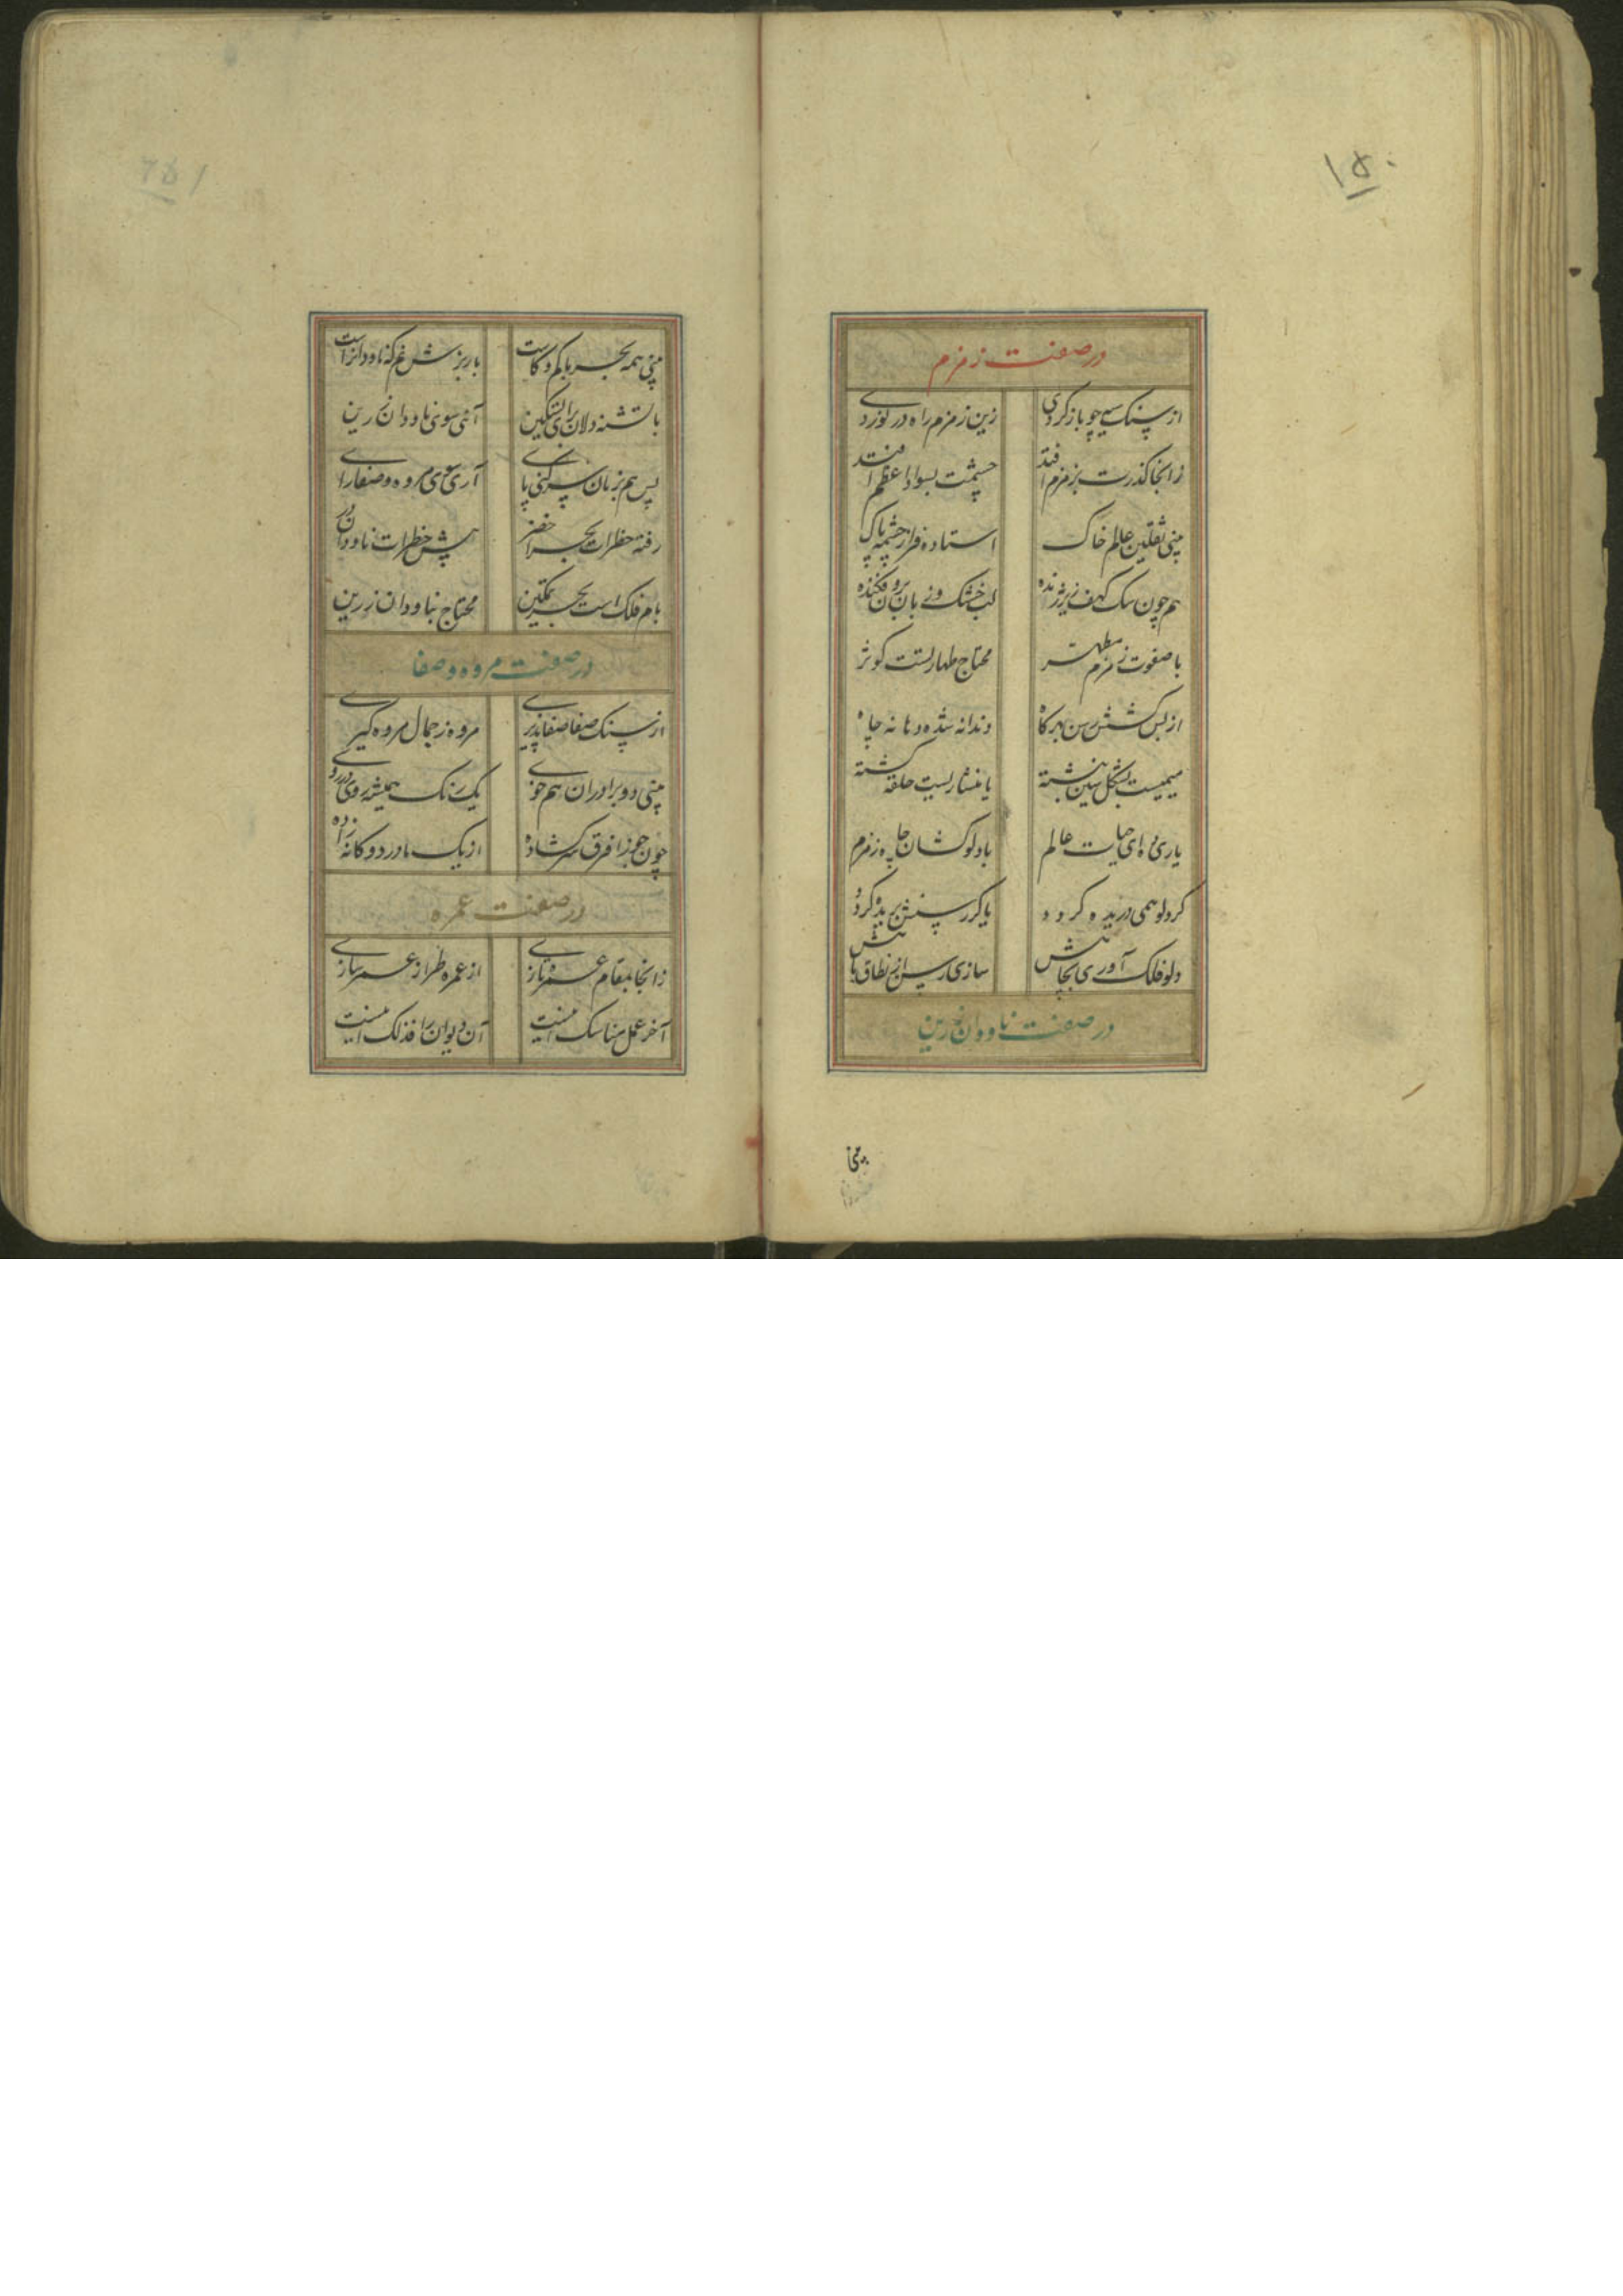 ۱۵۰
در صفت زمزم
از سنک سیه چو بازکردی زین زمزم راه در نوردی
زانجا کذرت بزمزم افتد چشمت بسواد اعظم افتد
بینی ثقلین عالم خاک استاده فراز چشمه پاک
هم چون سک کهف زنده لب خشک و زبان برون فکنده
با صفوت زمزم مطهر محتاج طهارتست کوثر
از بس کشش رسن بهر کاه دندانه شده دهانه چاه
میمیست بشکل سین نبشته یا منشاریست حلقه کشته
یاری ده ای حیات عالم با دلوکشان چاه زمزم
کر دلو همی دریده کردد یا کر رسنش بریده کردد
دلو فلک آوری بجایش سازی رسن از نطاق
در صفت ناودان زرین
بینی
۲۵۱
بینی همه بحر با کم و کاست با ریزش غم که ناودانراست
با تشنه دلان برای تسکین آئی سوی ناودان زرین
پس هم بزبان سر کنی پای آری سعی مروه و صفا رای
رفته خطرات بحر اخضر پیش خطرات ناودان در
بام فلک است بحر تمکین محتاج بناودان زرین
در صفت مروه و صفا
از سنک صفا صفا پذیری مروه ز جمال مروه کیری
بینی دو برادران هم خوی یک رنک همیشه روی در روی
چون جوزا فرق سر کشاده از یک مادر دوکانه زاده
در صفت عمره
زانجا بمقام عمره تازی از عمره طراز عمر سازی
آخر عمل مناسک اینست آن دیوان را فذلک اینست